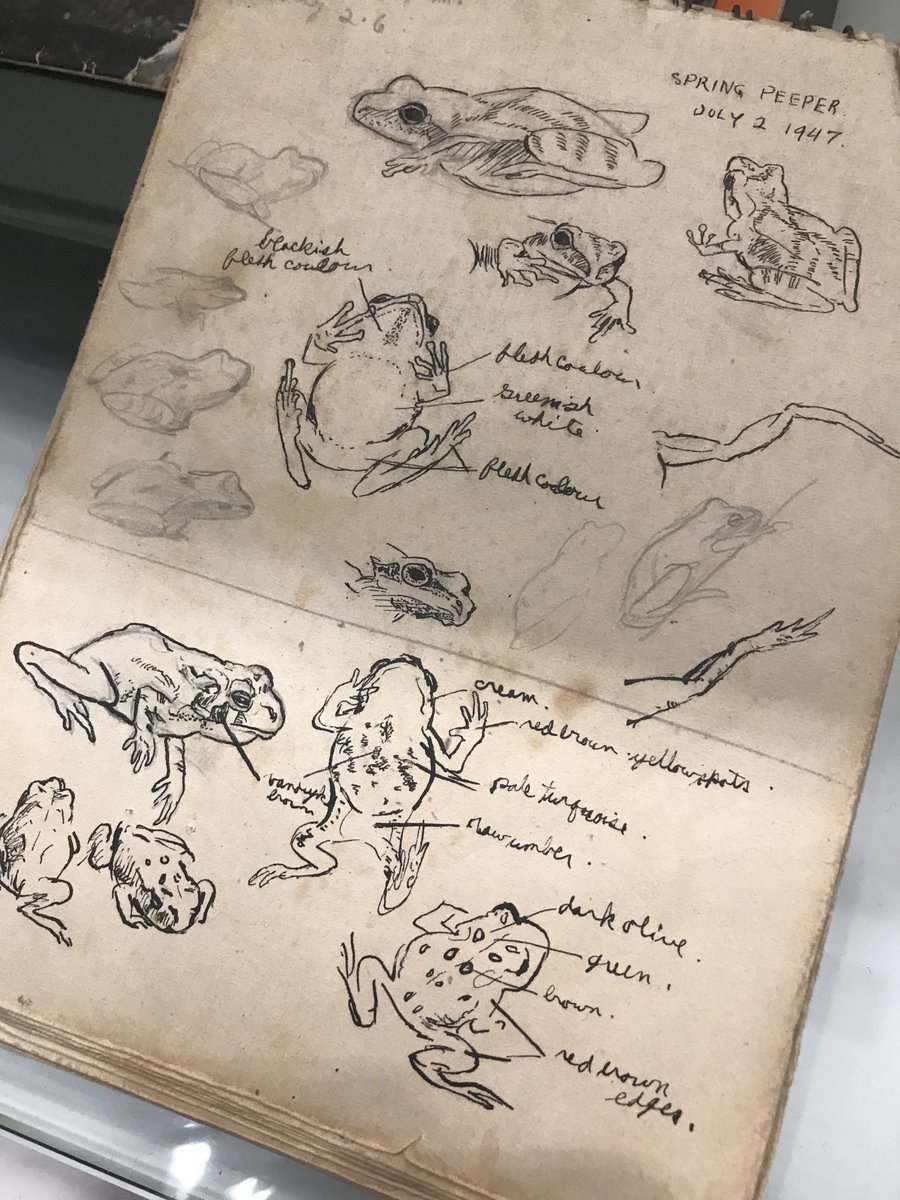 2.6
SPRING PEEPER.
JULY 2 1947.
blackish
flesh coulour
flesh coulour
Greenish
white
flesh colour
cream.
red brown yellow spots.
pale turquoise.
raw umber.
brown
dark olive.
green.
brown.
red brown
edges.